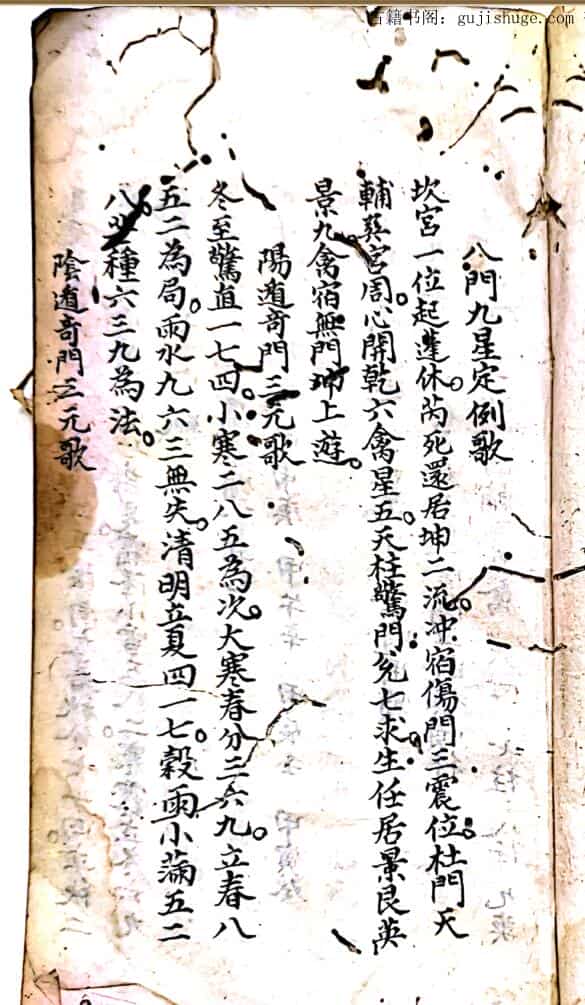 古籍书阁：gujishuge.com
八門九星定例歌
坎宮一位起蓬休。芮死還居坤二流。冲宿傷門三震位。杜門天
輔巽宮周。心開乾六禽星五。天柱驚門兌七求。生任居景艮英
景九禽宿無門坤上遊。
陽遁奇門三元歌
冬至驚直一七四。小寒二八五為次。大寒春分三六九。立春八
五二為局。雨水九六三無失。清明立夏四一七。穀雨小滿五二
八。種六三九為法。
陰遁奇門三元歌